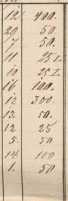 12 400.
20 50.
7 50.
11 25.
10 25.
16 100.
12 300.
13 50.
12 25
5 50
14 100
1. 50